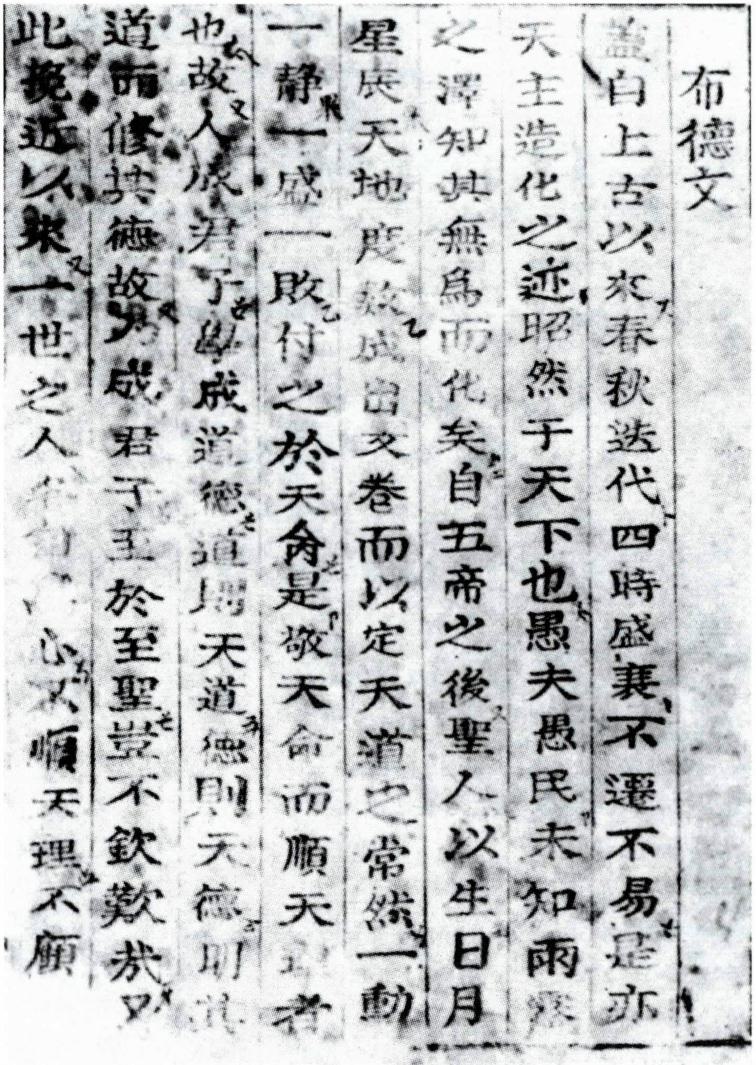 布德文
盖自上古以來春秋迭代四時盛衰不遷不易是亦
天主造化之迹昭然于天下也愚夫愚民未知雨露
之澤知其無爲而化矣自五帝之後聖人以生日月
星辰天地度數成出文卷而以定天道之常然一動
一静一盛一敗付之於天命是敬天命而順天理者
也故人成君子學成道德道則天道德則天德明其
道而修其德故乃成君子至於至聖豈不欽歎哉又
此挽近以來一世之人心不順天理不顧